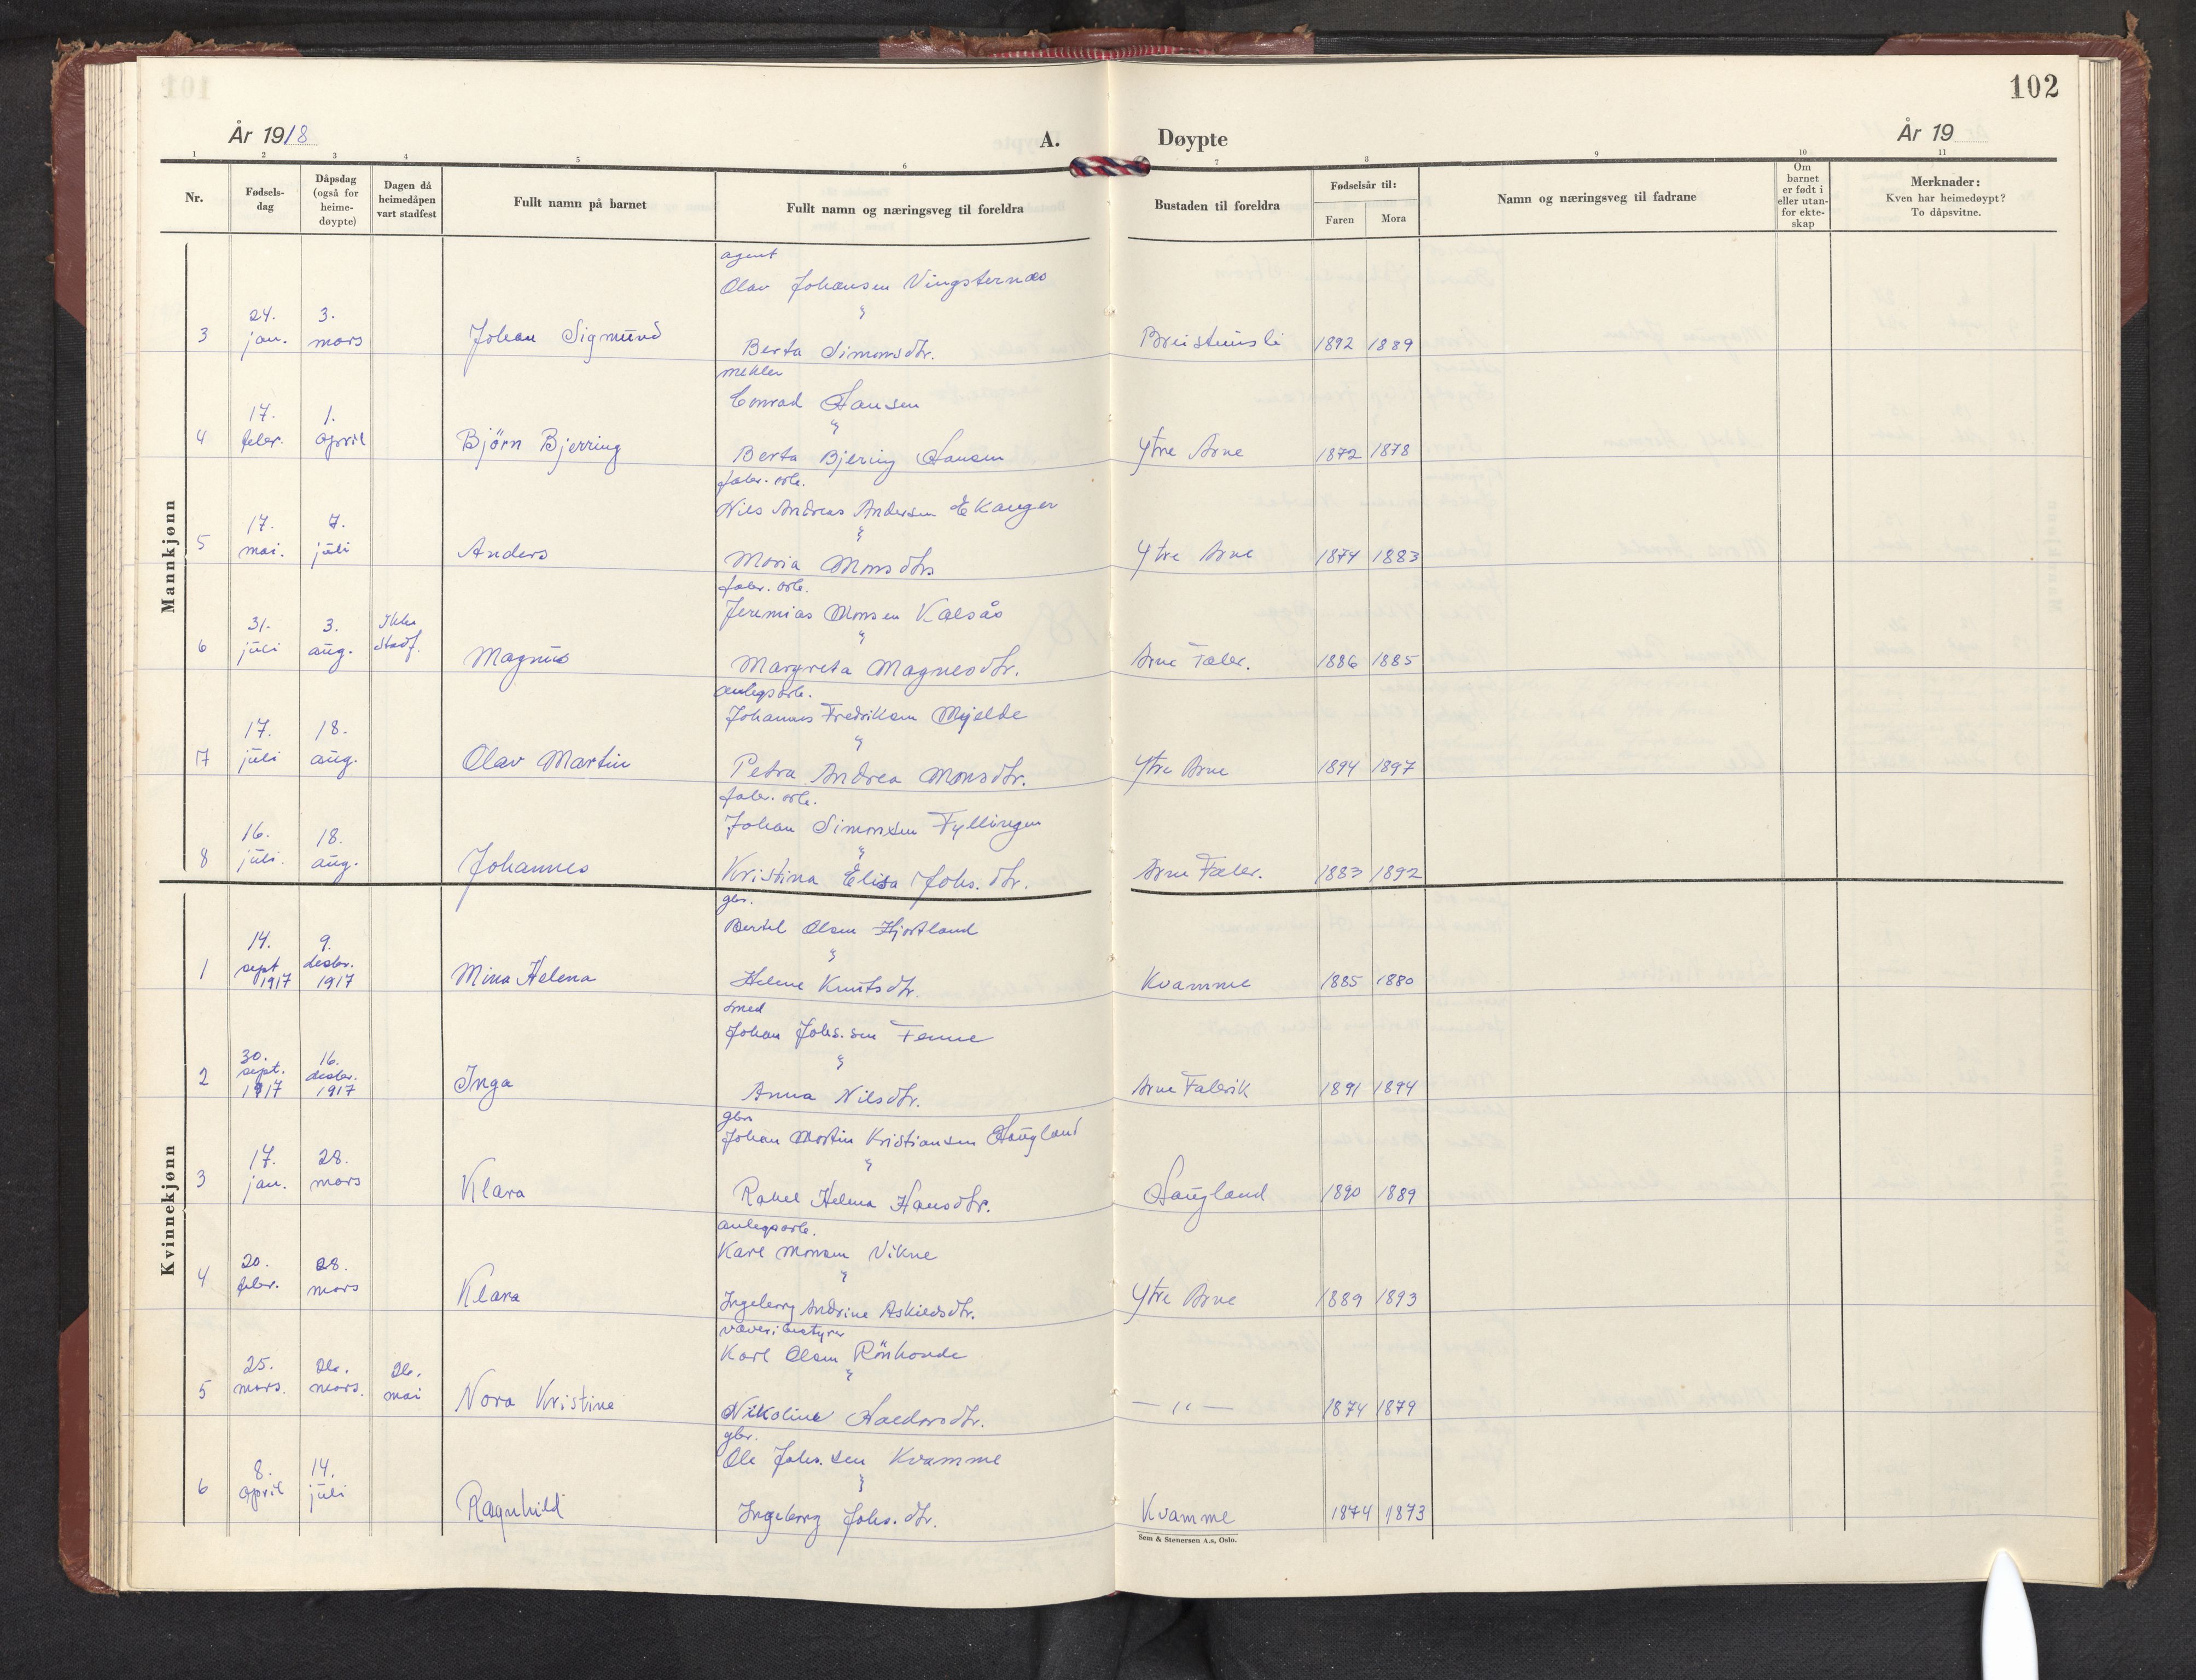 102
År 1918
A.
Døypte
År 19
1 2 3 4 5 6 7 8 9 10 11
Nr.
Fødsels-
dag
Dåpsdag
(også for
heime-
døypte)
Dagen då
heimedåpen
vart stadfest
Fullt namn på barnet
Fullt namn og næringsveg til foreldra
Bustaden til foreldra
Fødselsår til:
Faren Mora
Namn og næringsveg til fadrane
Om
barnet
er født i
eller utan-
for ekte-
skap
Merknader:
Kven har heimedøypt?
To dåpsvitne.
Mannkjønn
agent
Olav Johansen Vingsternæs
24. 3.
3 jan. mars Johan Sigmund Berta Simonsdtr. Breisteinsli 1892 1889
mekler
Conrad Hansen
17. 1.
4 febr. april Björn Bjerring Berta Bjering Hansen Ytre Arne 1872 1878
fabr. arb.
Nils Andreas Andersen Ekanger
17. 7.
5 mai. juli Anders Maria Monsdtr Ytre Arne 1874 1883
fabr. arb.
Jeremias Monsen Kalsås
31. 3. Ikke
6 juli aug. stadf. Magnus Margreta Magnesdtr. Arne Fabr. 1886 1885
anlegsarb.
Johannes Fredriksen Mjelde
17. 18.
7 juli aug. Olav Martin Petra Andrea Monsdtr. Ytre Arne 1894 1897
fabr. arb.
Johan Simonsen Fyllingen
16. 18.
8 juli. aug. Johannes Kristina Elisa Johs. dtr. Arne Fabr. 1883 1892
Kvinnekjønn
gbr.
Bertel Olsen Hjortland
14. 9.
sept desbr.
1 1917 1917 Mina Helena Helene Knutsdtr. Kvamme 1885 1880
smed
Johan Johs. sen Fenne
30. 16.
sept. desbr.
2 1917 1917 Inga Anna Nilsdtr. Arne Fabrik 1891 1894
gbr
Johan Martin Kristiansen Haugland
17. 28.
3 jan. mars Klara Rakel Helena Hansdtr. Haugland 1890 1889
anlegsarb.
Karl Monsen Vikne
20. 28.
4 febr. mars Klara Ingeborg Andrine Askildsdtr. Ytre Arne 1889 1893
væveribestyrer
Karl Olsen Rönhovde
25. 26. 26.
5 mars. mars. mai Nora Kristine Nikoline Haldorsdtr. — " — 1874 1879
gbr.
Ole Johs. sen Kvamme
8. 14.
6 april juli Ragnhild Ingeborg Johs. dtr. Kvamme 1874 1873
Sem & Stenersen A.s, Oslo.